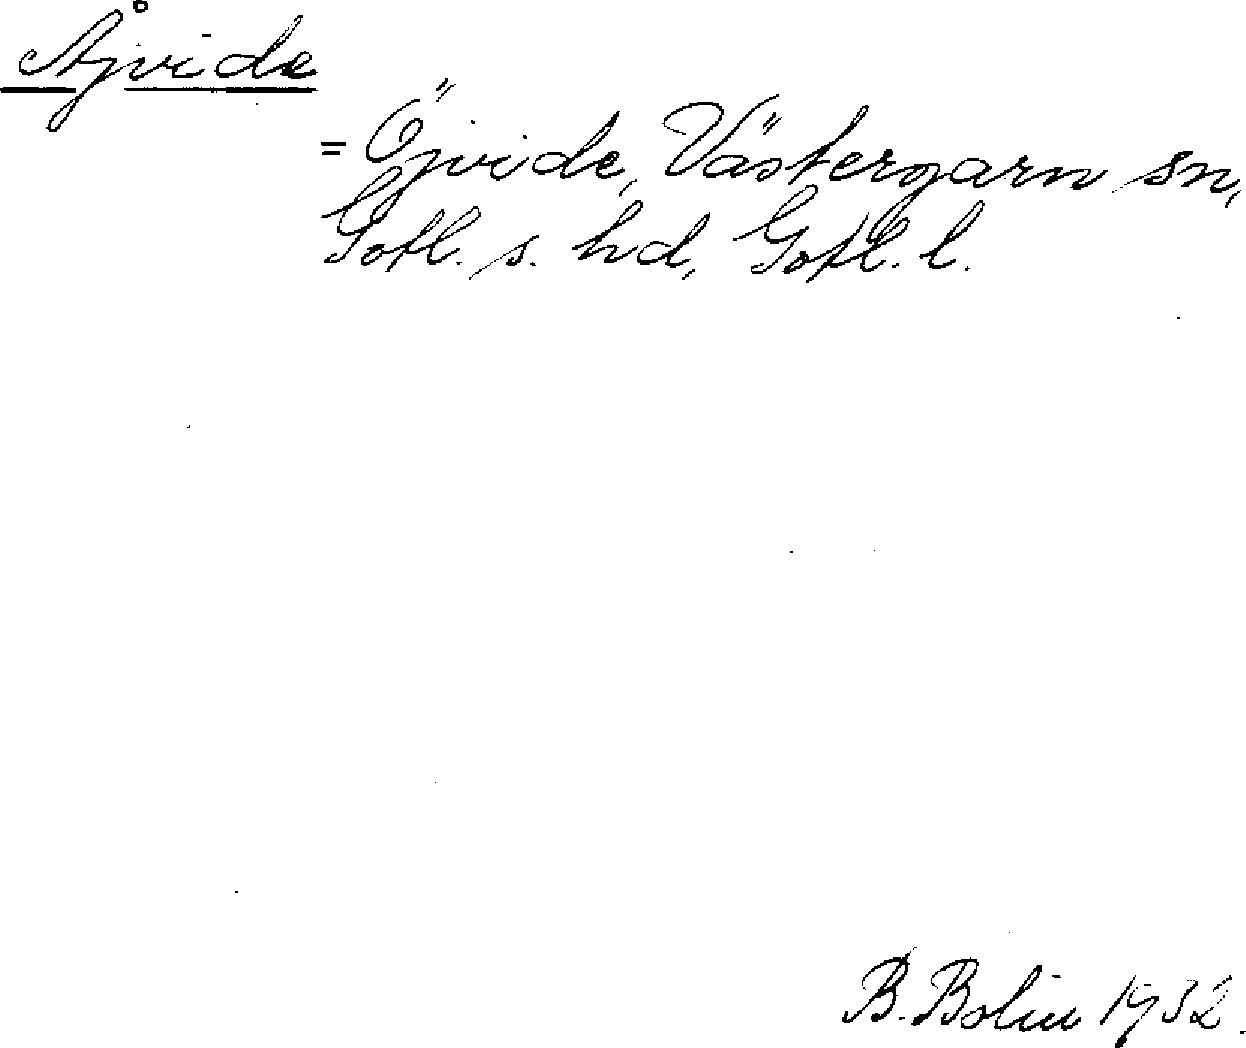 Åjvide
= Öjvide, Västergarn sn,
Gotl. s. hd, Gotl. l.
B. Bolin 1932.